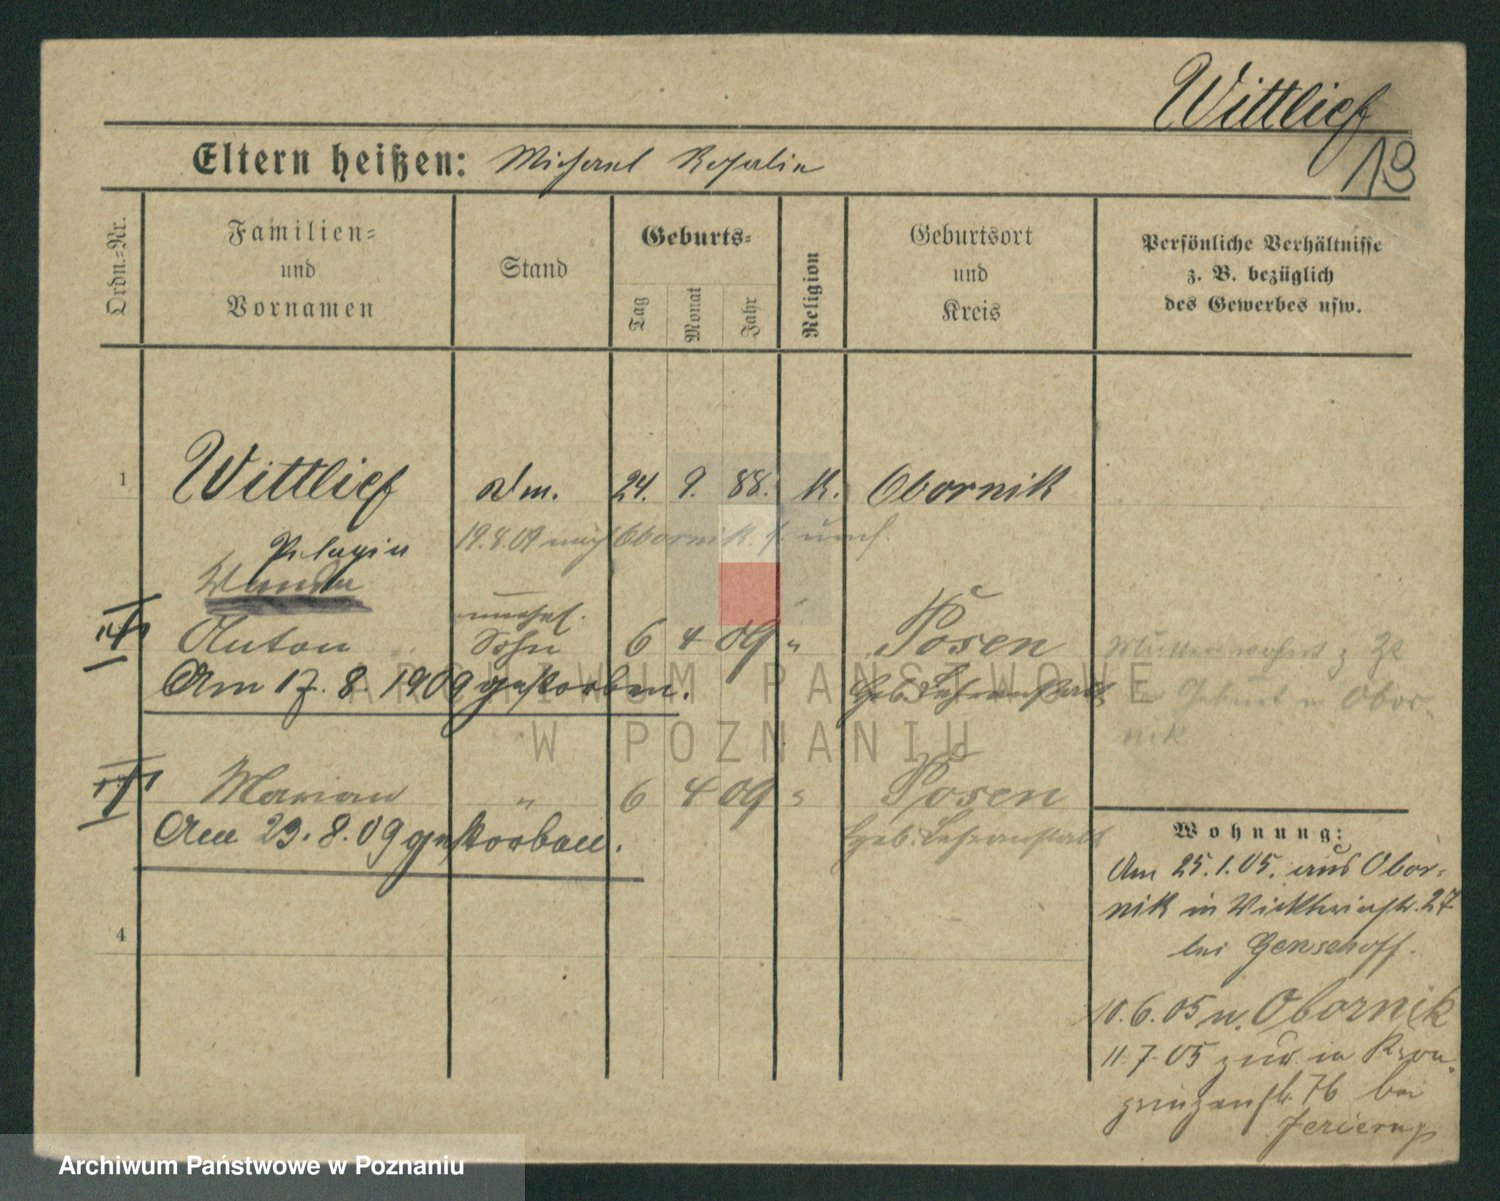 Wittlief
13
Eltern heißen: Michael Rosalie
Ordn.-Nr.
Familien-
und
Vornamen
Stand
Geburts-
Tag
Monat
Jahr
Religion
Geburtsort
und
Kreis
Persönliche Verhältnisse
z. B. bezüglich
des Gewerbes usw.
1 Wittlief 24. 9. 88. K. Obornik
Pelagia
19.8.09 nach Obornik
Wanda
unehel.
Anton Sohn 6 4 09 " Posen
Am 17. 8. 1909 gestorben.
Geb. Lehranstalt
Mutter wohnt z Zt
der Geburt in Obor-
nik
Marian " 6 4 09 " Posen
Am 29. 8. 09 gestorben.
Geb. Lehranstalt
4
Wohnung:
Am 25. 1. 05. aus Obor-
nik in 27
bei
10. 6. 05 n. Obornik
11. 7. 05 zur. in Kron-
prinzenstr. 76 bei
ARCHIWUM PAŃSTWOWE
W POZNANIU
Archiwum Państwowe w Poznaniu